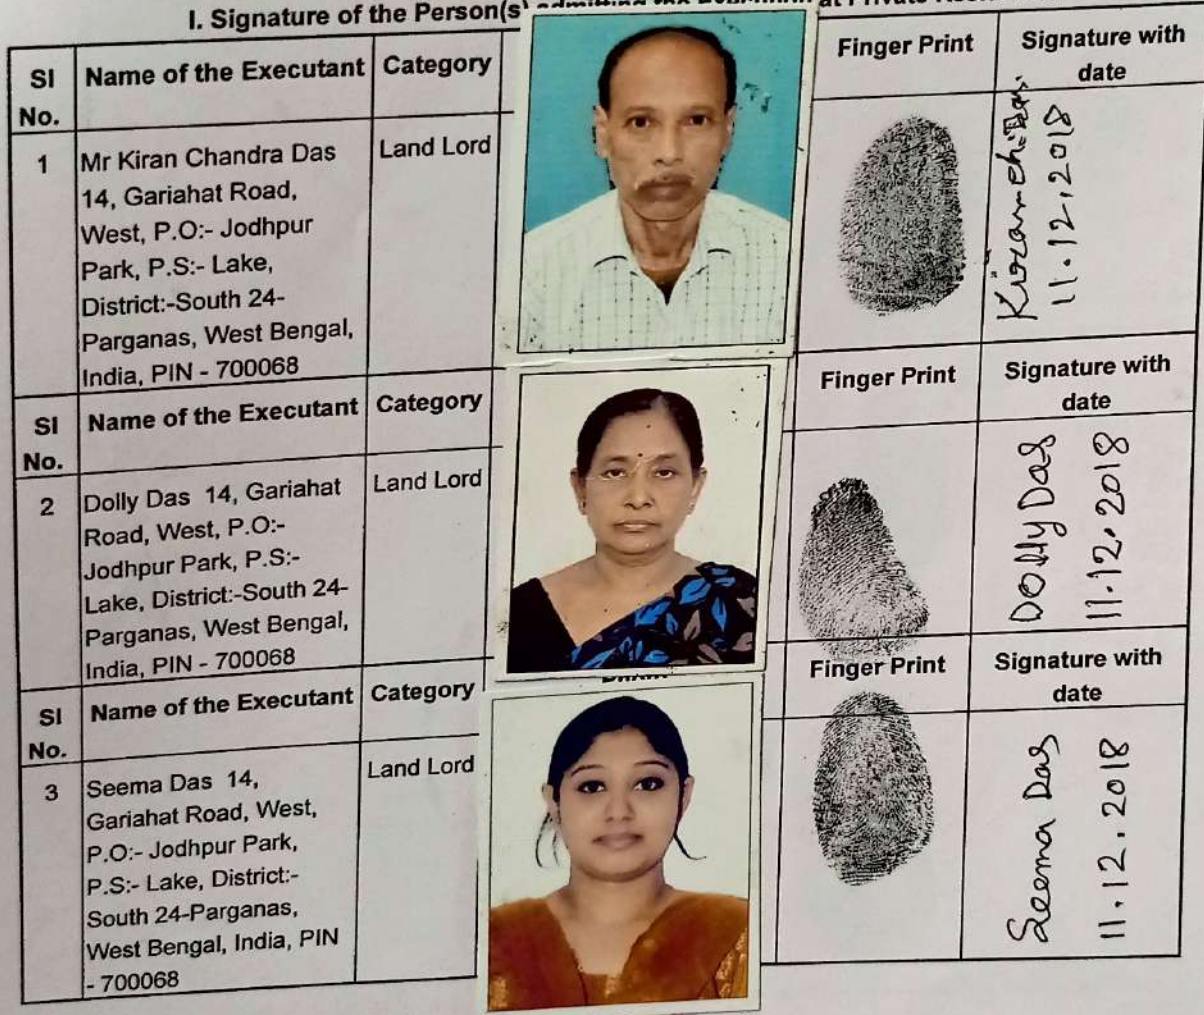 I. Signature of the Person(s) admitting the Execution at Private
Sl No. Name of the Executant Category Finger Print Signature with date
1 Mr Kiran Chandra Das Land Lord
14, Gariahat Road,
West, P.O:- Jodhpur
Park, P.S:- Lake,
District:-South 24-
Parganas, West Bengal,
India, PIN - 700068
11.12.2018
Sl No. Name of the Executant Category Finger Print Signature with date
2 Dolly Das 14, Gariahat Land Lord
Road, West, P.O:-
Jodhpur Park, P.S:-
Lake, District:-South 24-
Parganas, West Bengal,
India, PIN - 700068
Dolly Das
11.12.2018
Sl No. Name of the Executant Category Finger Print Signature with date
3 Seema Das 14, Land Lord
Gariahat Road, West,
P.O:- Jodhpur Park,
P.S:- Lake, District:-
South 24-Parganas,
West Bengal, India, PIN
- 700068
Seema Das
11.12.2018